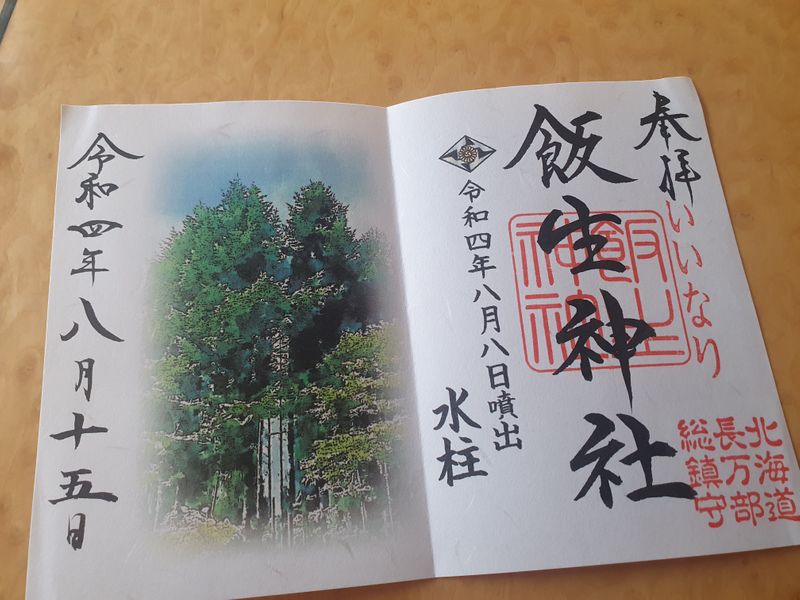 奉拝
いいなり
北海道
長万部
総鎮守
飯生神社
飯生神社
令和四年八月八日噴出
水柱
令和四年八月十五日